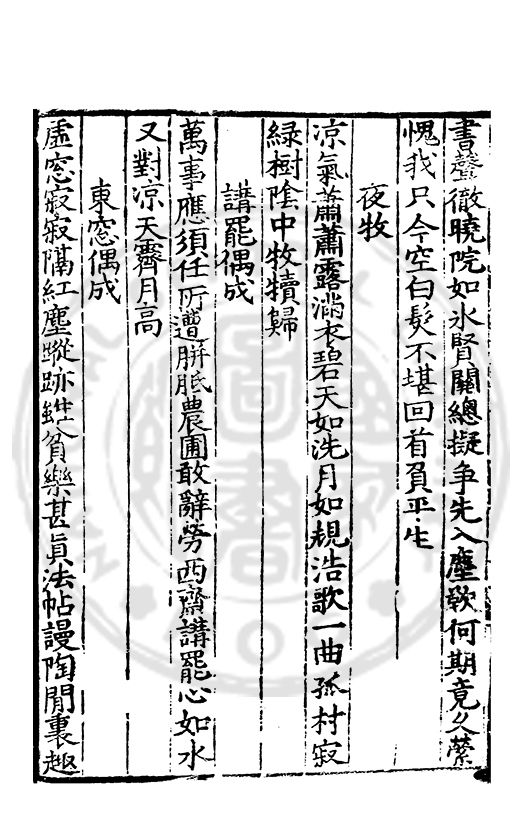 書聲徹曉院如氷賢關總擬爭先入塵欵何期竟久縈
愧我只今空白髮不堪回首負平生
夜牧
凉氣蕭蕭露滿衣碧天如洗月如規浩歌一曲孤村寂
緑樹陰中牧犢歸
講罷偶成
萬事應須任所遭胼胝農圃敢辭勞西齋講罷心如水
又對凉天霽月高
東窓偶成
虛窓寂寂隔紅塵蹤跡雖貧樂甚眞法帖謾陶閒裏趣